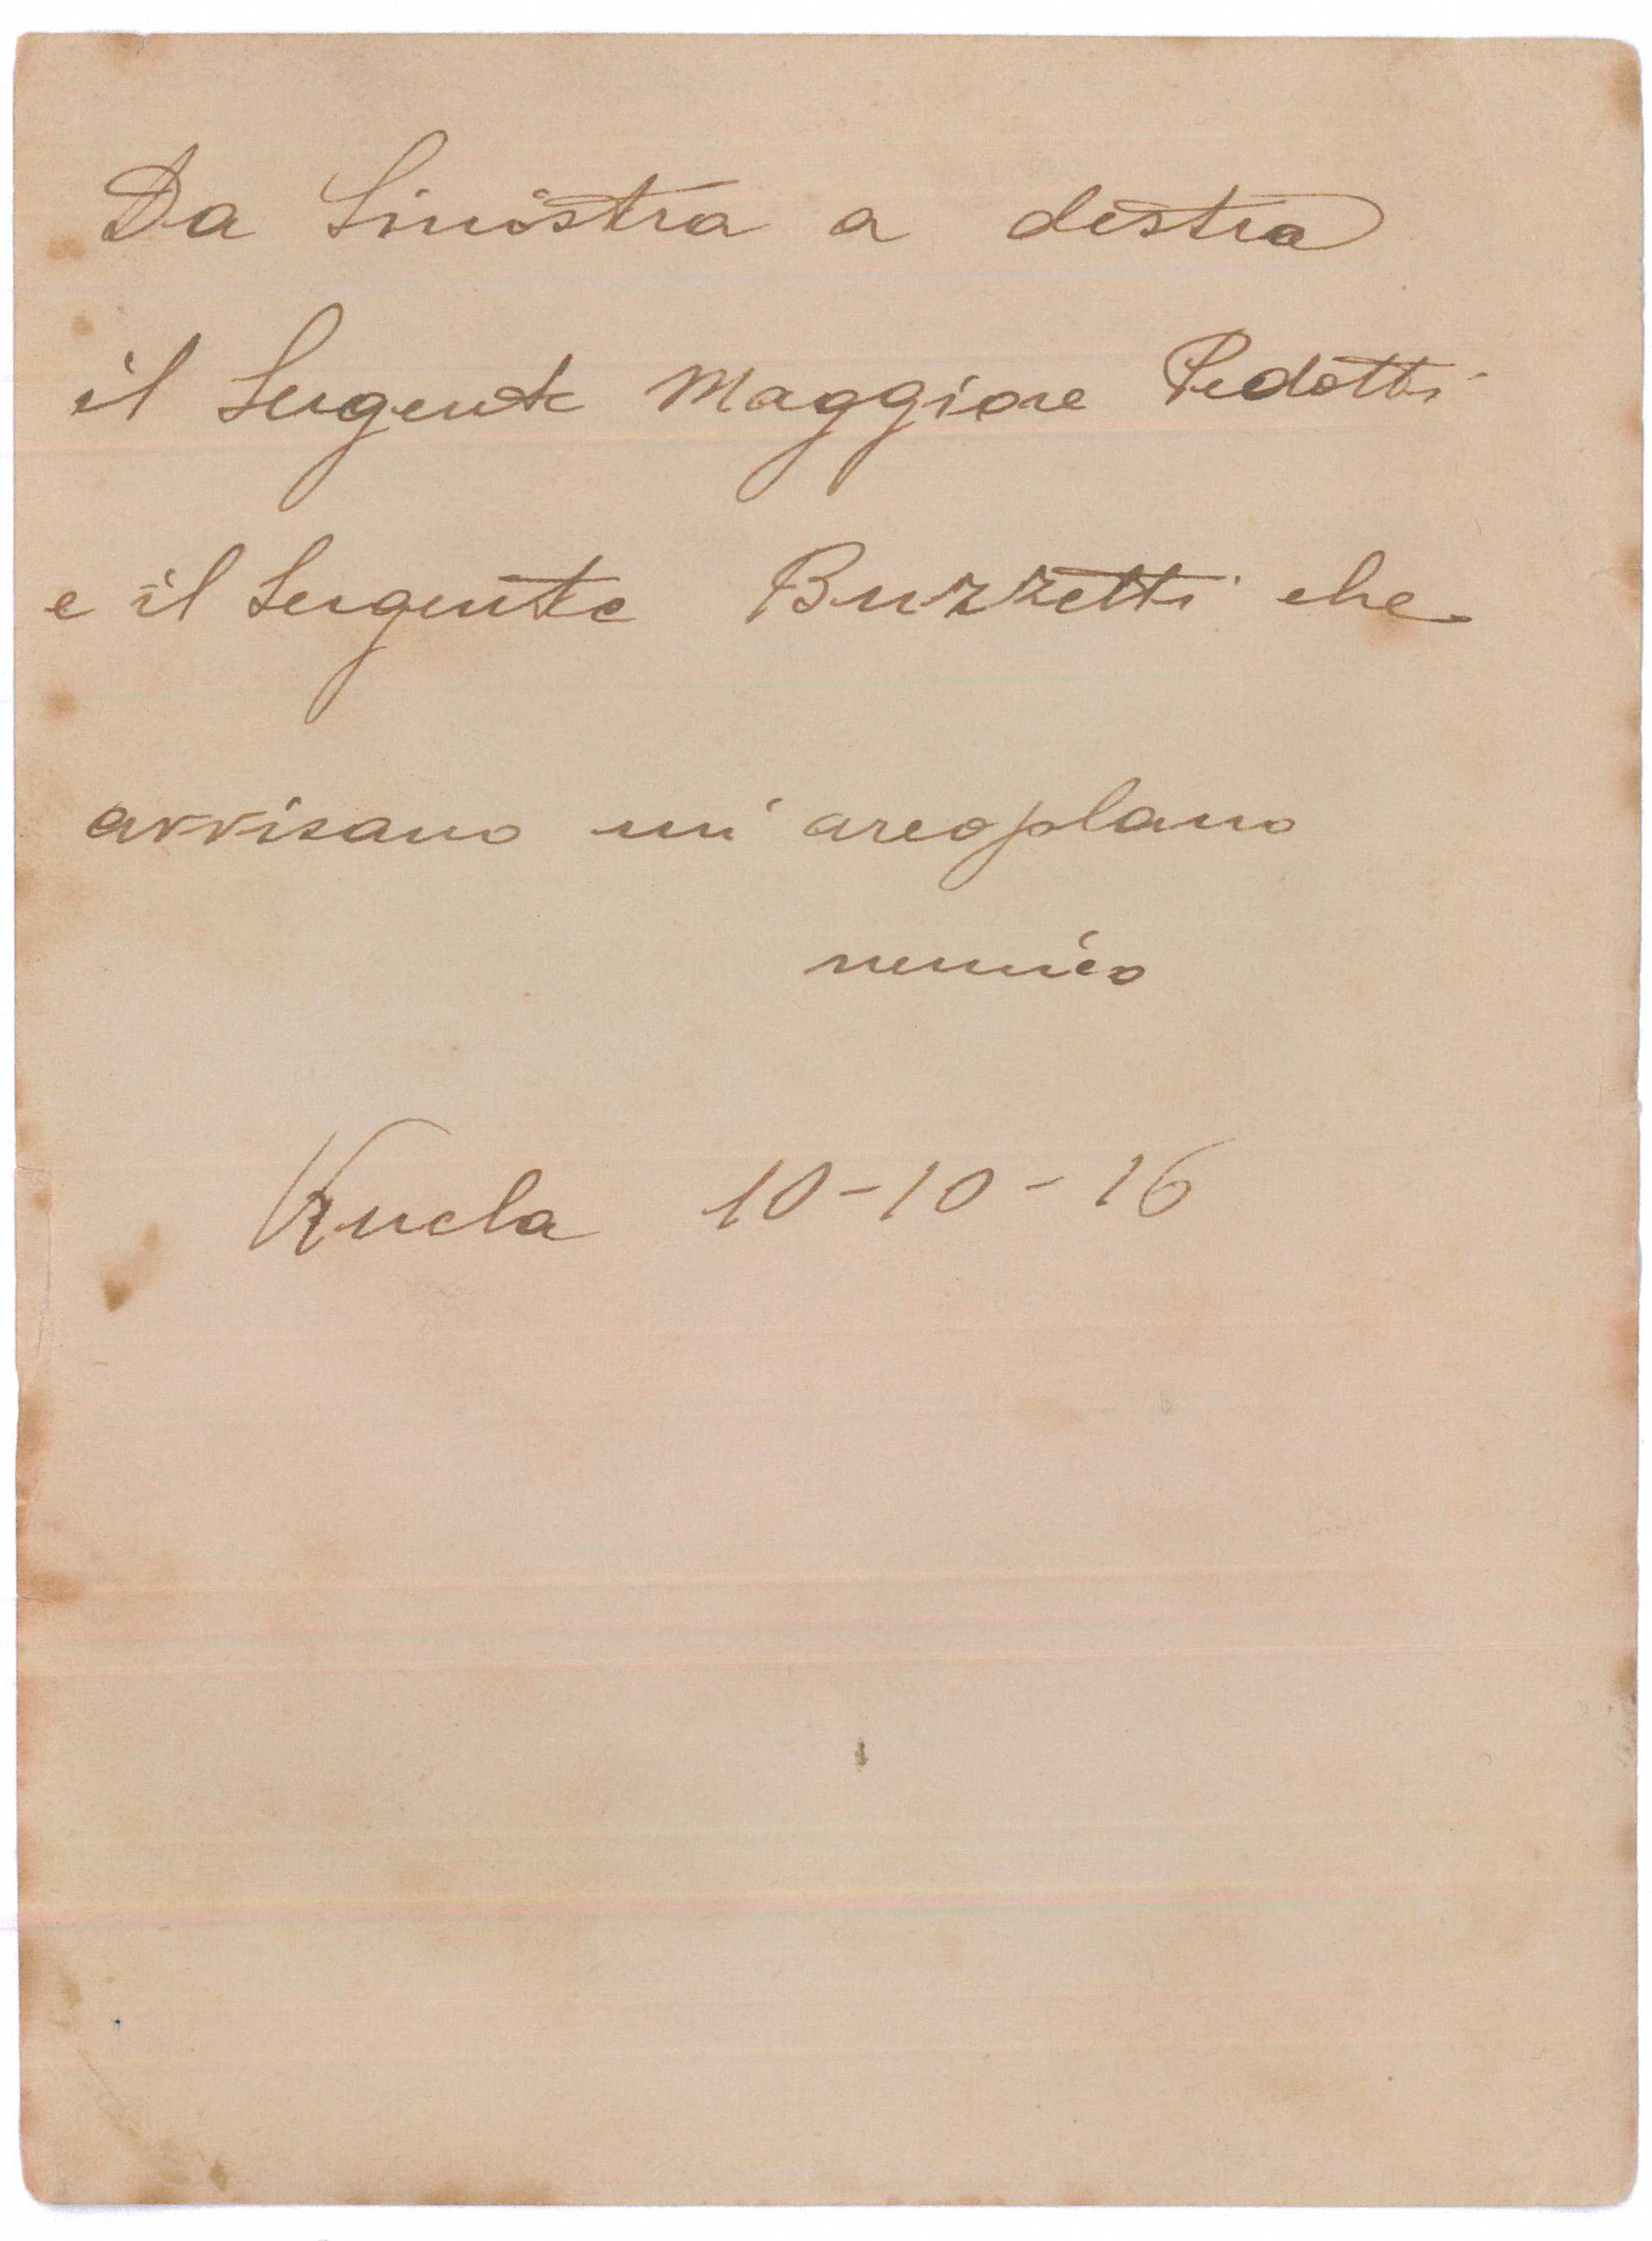 Da Sinistra a destra
il Sergente Maggiore Pedotti
e il Sergente Buzzetti che
avvisano un' areoplano
nemico
Kucla 10-10-16